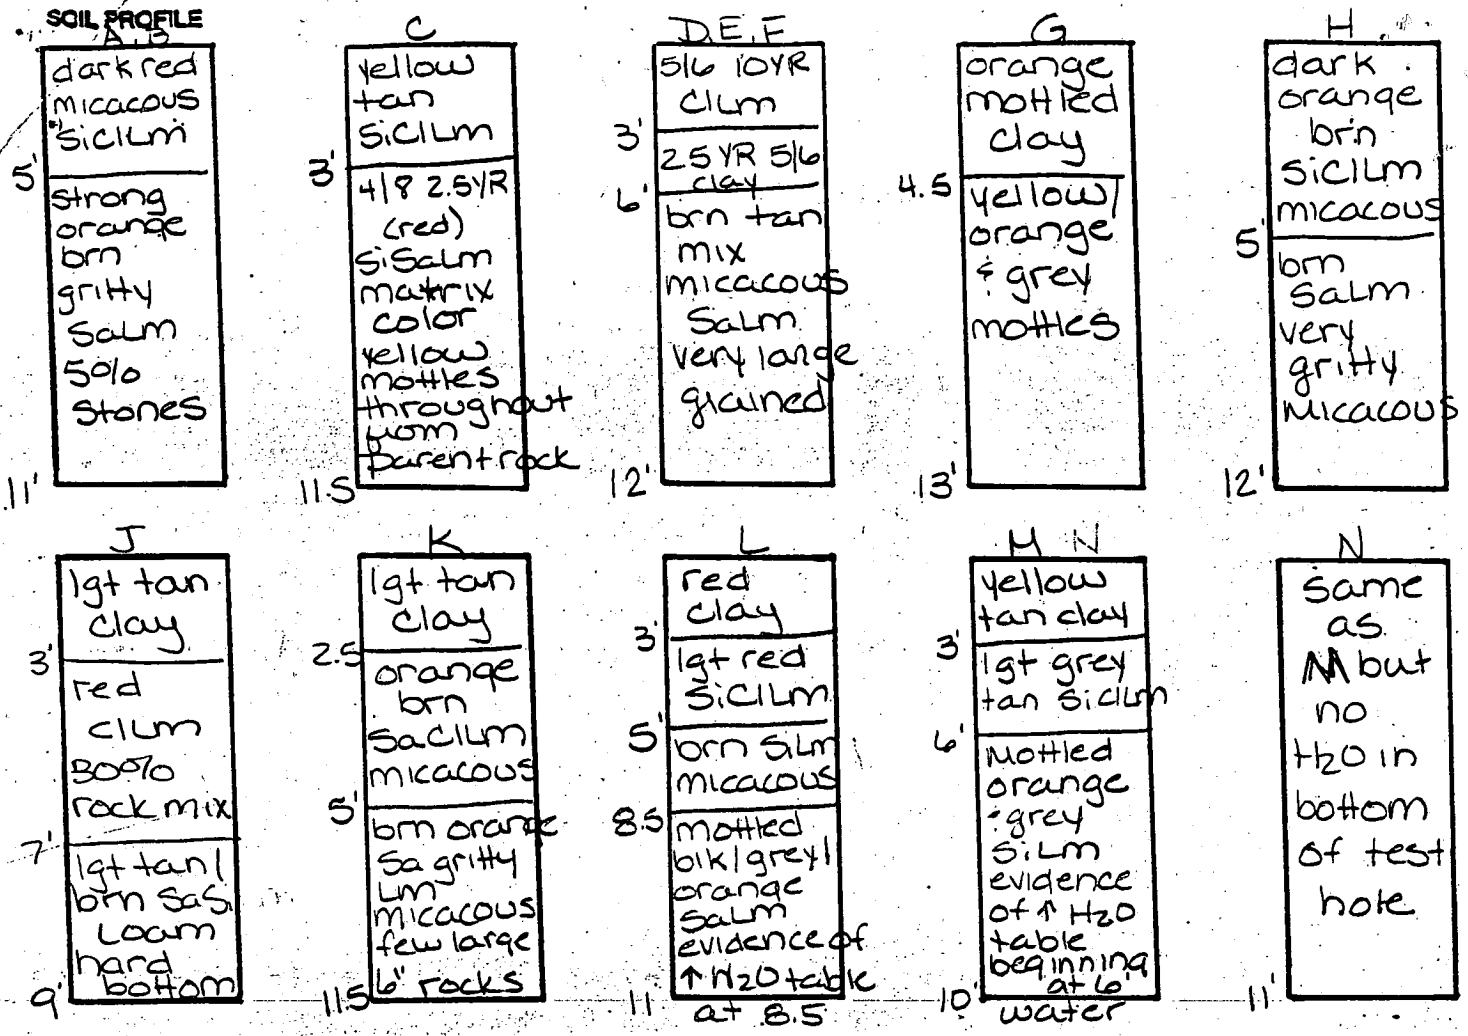 SOIL PROFILE
A, B
dark red
micacous
siClLm
5'
strong
orange
brn
gritty
SaLm
50%
stones
11'
C
yellow
tan
SiClLm
3'
4/8 2.5YR
(red)
SiSaLm
matrix
color
yellow
mottles
throughout
from
parent rock
11.5
D,E,F
5/6 10YR
ClLm
3'
2.5 YR 5/6
clay
6'
brn tan
mix
micacous
SaLm
very large
grained
12'
G
orange
mottled
clay
4.5
yellow/
orange
& grey
mottles
13'
H
dark
orange
brn
SiClLm
micacous
5'
brn
SaLm
very
gritty
micacous
12'
J
lgt tan
clay
3'
red
clLm
30%
rock mix
7'
lgt tan/
brn SaSi
Loam
hard
bottom
9'
K
lgt tan
clay
2.5
orange
brn
SaClLm
micacous
5'
brn orange
Sa gritty
Lm
micacous
few large
6" rocks
11.5
L
red
clay
3'
lgt red
SiClLm
5'
brn SiLm
micacous
8.5
mottled
blk/grey/
orange
SaLm
evidence of
↑ H2O table
at 8.5
11
M N
yellow
tan clay
3'
lgt grey
tan SiClLm
6'
Mottled
orange
& grey
SiLm
evidence
of ↑ H2O
table
beginning
at 6'
water
10'
N
same
as
M but
no
H2O in
bottom
of test
hole
11'